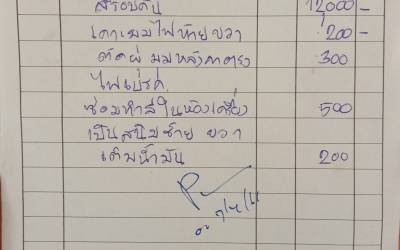 สีรอบคัน 12,000 -
เคาะเบมไฟท้ายขวา 200 -
ตัดผุ มุมหลังคาตรง 300
ไฟเบรค
ซ่อมทำสีในห้องเครื่อง 500
เป็นสนิมซ้าย ขวา
เติมน้ำมัน 200